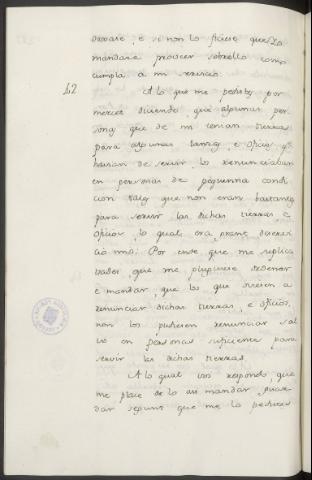 dexare, e si non lo ficiese que yo
mandare proveer sobrello como
cumpla a mi servicio.
42 A lo que me pedistes por
merced diciendo que algunas per
sonas que de mi tenian tierras
para algunas lanzas, e oficios q.
habian de servir, los renunciaban
en personas de pequenna condi
cion tales que non eran bastantes
para servir las dichas tierras, e
oficios, lo qual era grant deservi
cio mio: Por ende que me suplica
vades, que me pluguiese ordenar
e mandar, que los que oviesen a
renunciar dichas tierras, e oficios,
non los pudiesen renunciar sal
vo en personas suficientes para
servir las dichas tierras.
A lo qual vos respondo, que
me place de lo asi mandar guar
dar segunt que me lo pedistes